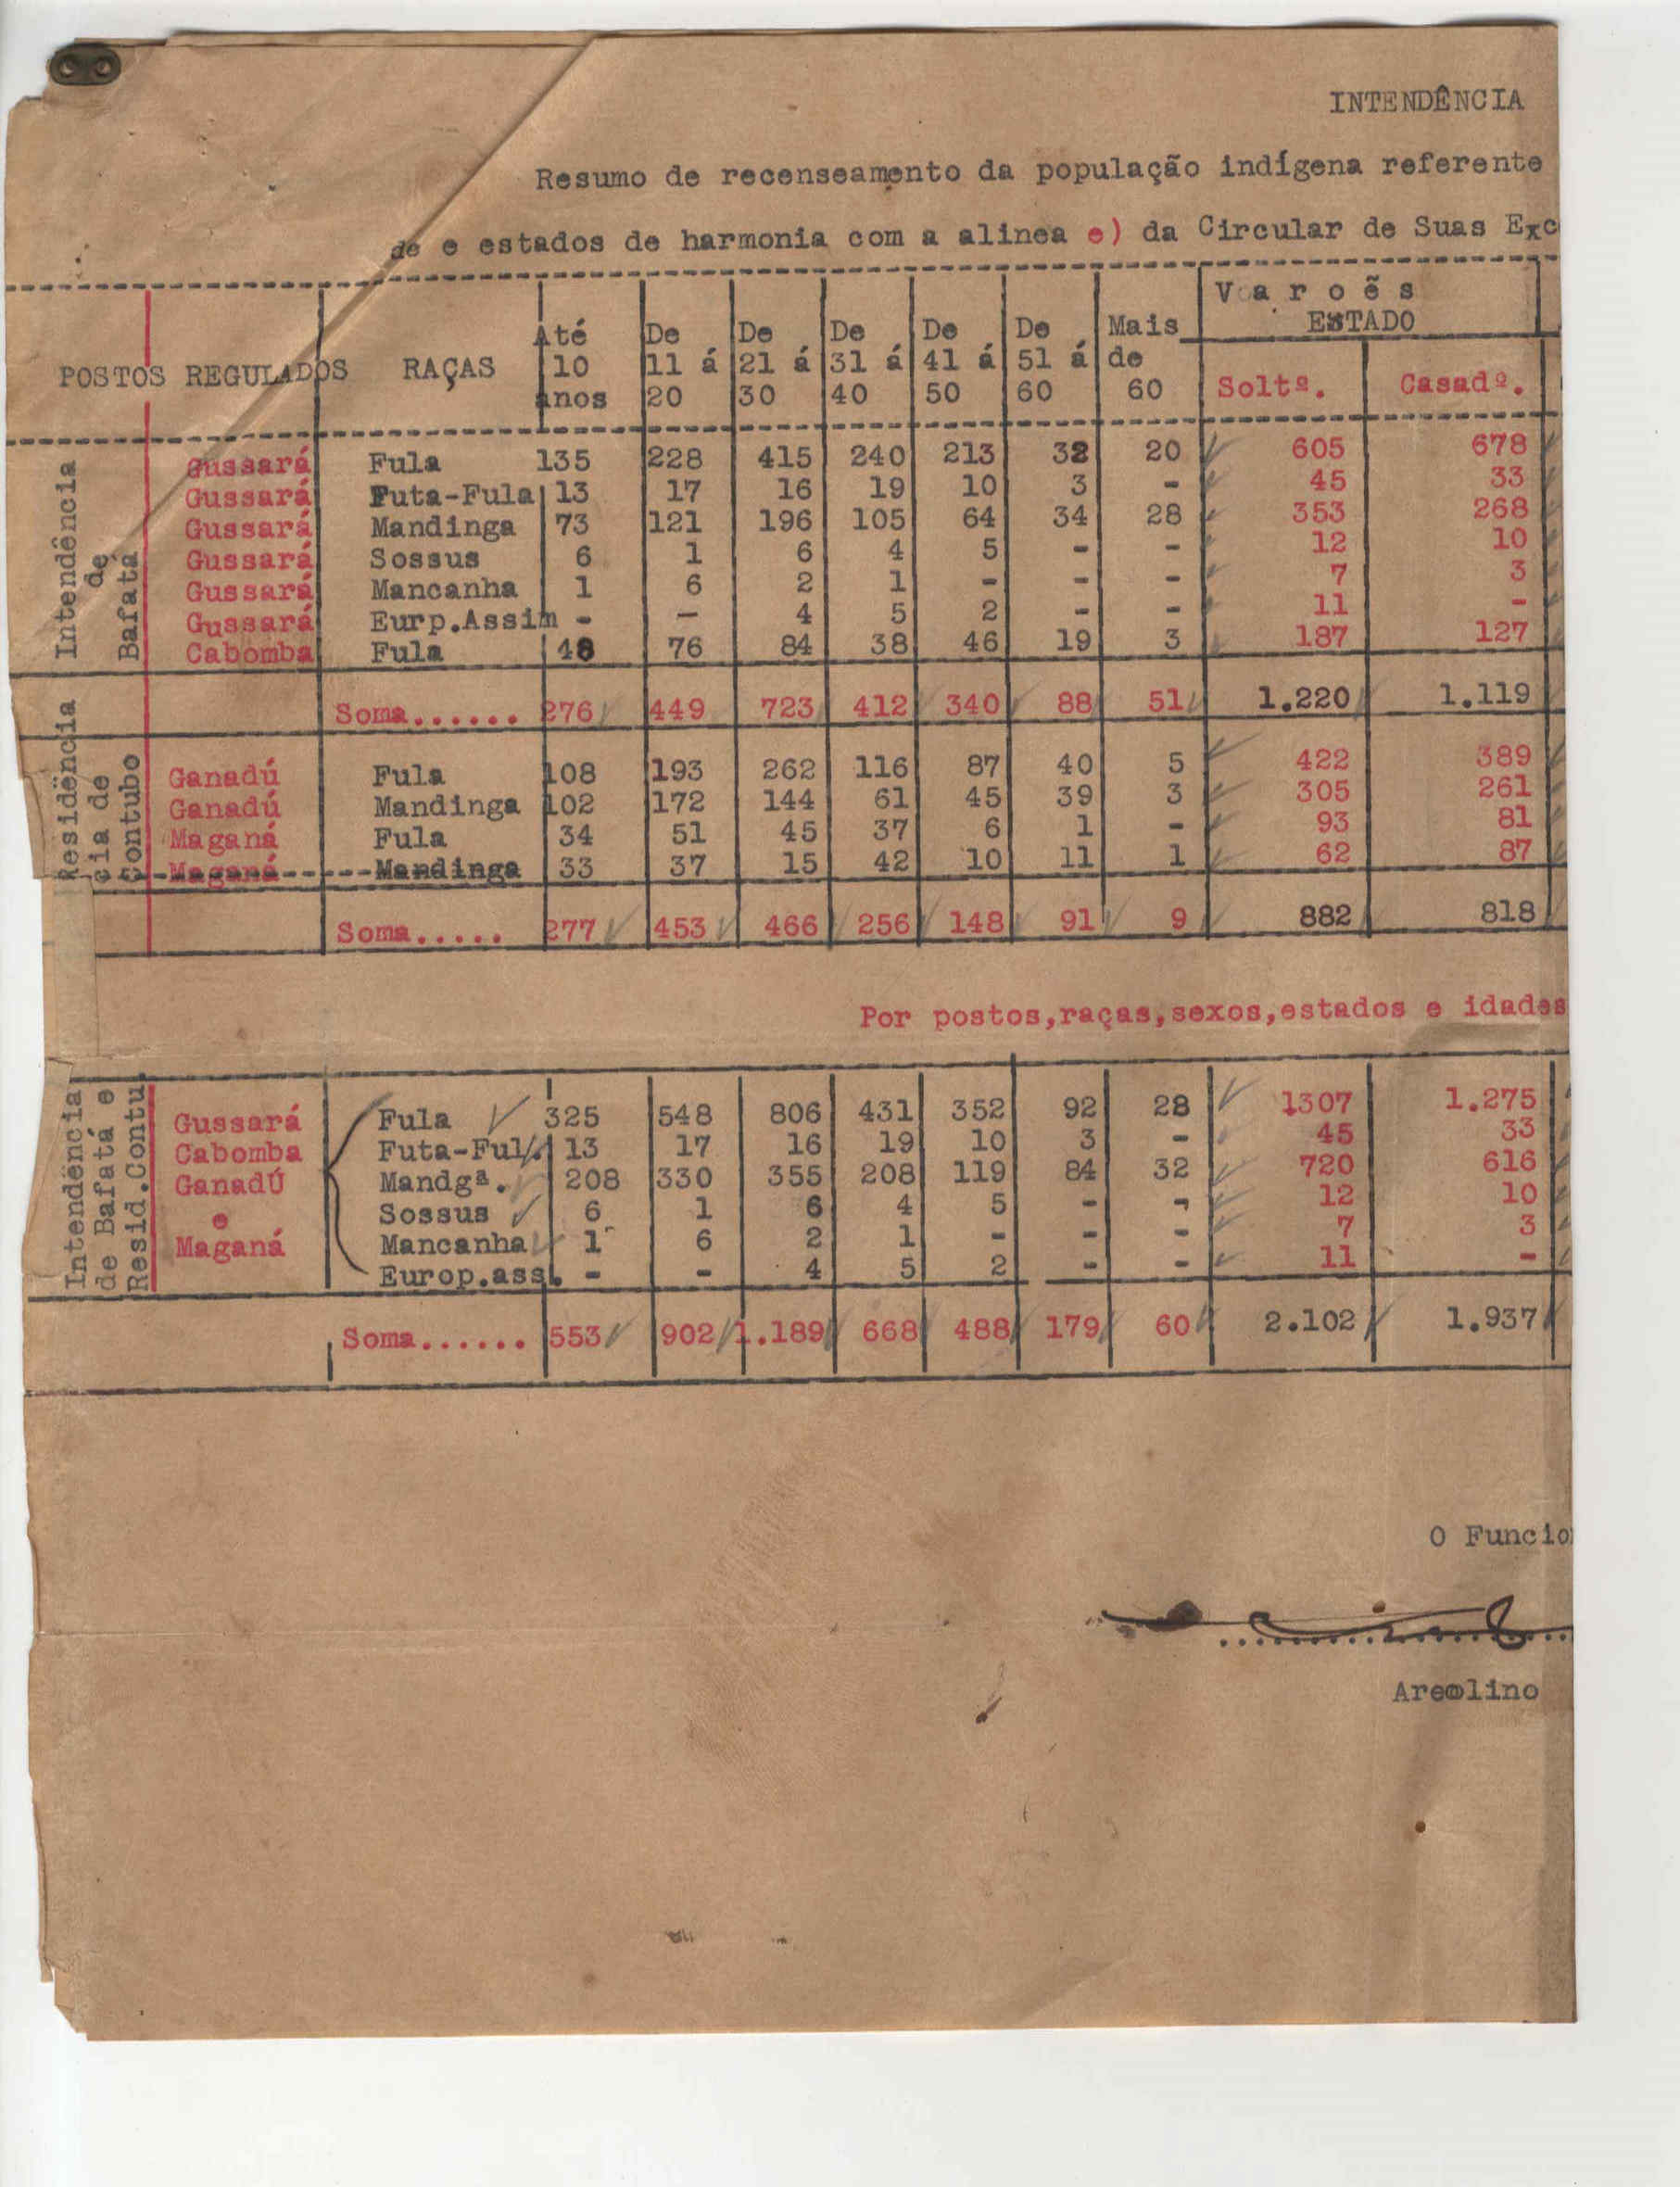 INTENDÊNCIA
Resumo de recenseamento da população indígena referente
de e estados de harmonia com a alinea e) da Circular de Suas Exc
POSTOS REGULADOS RAÇAS Até 10 anos De 11 á 20 De 21 á 30 De 31 á 40 De 41 á 50 De 51 á 60 Mais de 60 Varoẽs ESTADO Soltº. Casadº.
Intendência de Bafatá
Gussará Fula 135 228 415 240 213 32 20 605 678
Gussará Futa-Fula 13 17 16 19 10 3 - 45 33
Gussará Mandinga 73 121 196 105 64 34 28 353 268
Gussará Sossus 6 1 6 4 5 - - 12 10
Gussará Mancanha 1 6 2 1 - - - 7 3
Gussará Eurp.Assim - - 4 5 2 - - 11 -
Cabomba Fula 48 76 84 38 46 19 3 187 127
Soma...... 276 449 723 412 340 88 51 1.220 1.119
Residência de Contubo
Ganadú Fula 108 193 262 116 87 40 5 422 389
Ganadú Mandinga 102 172 144 61 45 39 3 305 261
Maganá Fula 34 51 45 37 6 1 - 93 81
Maganá Mandinga 33 37 15 42 10 11 1 62 87
Soma..... 277 453 466 256 148 91 9 882 818
Por postos,raças,sexos,estados e idades
Intendência de Bafatá e Resid.Contu
Gussará Fula 325 548 806 431 352 92 28 1307 1.275
Cabomba Futa-Ful. 13 17 16 19 10 3 - 45 33
GanadÚ Mandgª. 208 330 355 208 119 84 32 720 616
e Sossus 6 1 6 4 5 - - 12 10
Maganá Mancanha 1 6 2 1 - - - 7 3
Europ.ass. - - 4 5 2 - - 11 -
Soma...... 553 902 1.189 668 488 179 60 2.102 1.937
O Funcio